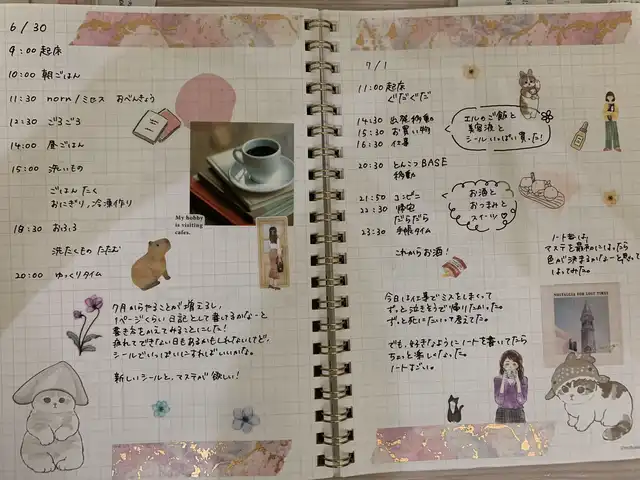 6/30
9:00 起床
10:00 朝ごはん
11:30 norn/ミセス おべんきょう
12:30 ごろごろ
14:00 昼ごはん
15:00 洗いもの
ごはんたく
おにぎり,冷凍作り
18:30 おふろ
洗たくもの たたむ
20:00 ゆっくりタイム
My hobby
is visiting
cafes.
7月からやることが増えるし、
1ページくらい日記として書けるかなーと
書き方をかえてみることにした!
疲れてできない日もあるかもしれないけど、
シールでいっぱいにすればいいかな。
新しいシールと、マステが欲しい!
7/1
11:00 起床
ぐだぐだ
14:30 出発 移動
15:30 お買い物
16:30 仕事
20:30 とんこつBASE
移動
21:50 コンビニ
22:30 帰宅
だらだら
23:30 手帳タイム
これからお酒!
エルのご飯と
美容液と
シールいっぱい買った!
お酒と
おつまみと
スイーツ♡
ノートをは、
マステを最初にはったら
色が決まるかなーと思って
はってみた。
NOSTALGIA FOR LOST TIMES
今日は仕事でミスをしまくって
ずっと泣きそうで帰りたかった。
ずっと死にたいって考えてた。
でも、好きなようにノートを書いてたら
ちょっと楽しくなった。
ノートすごい。